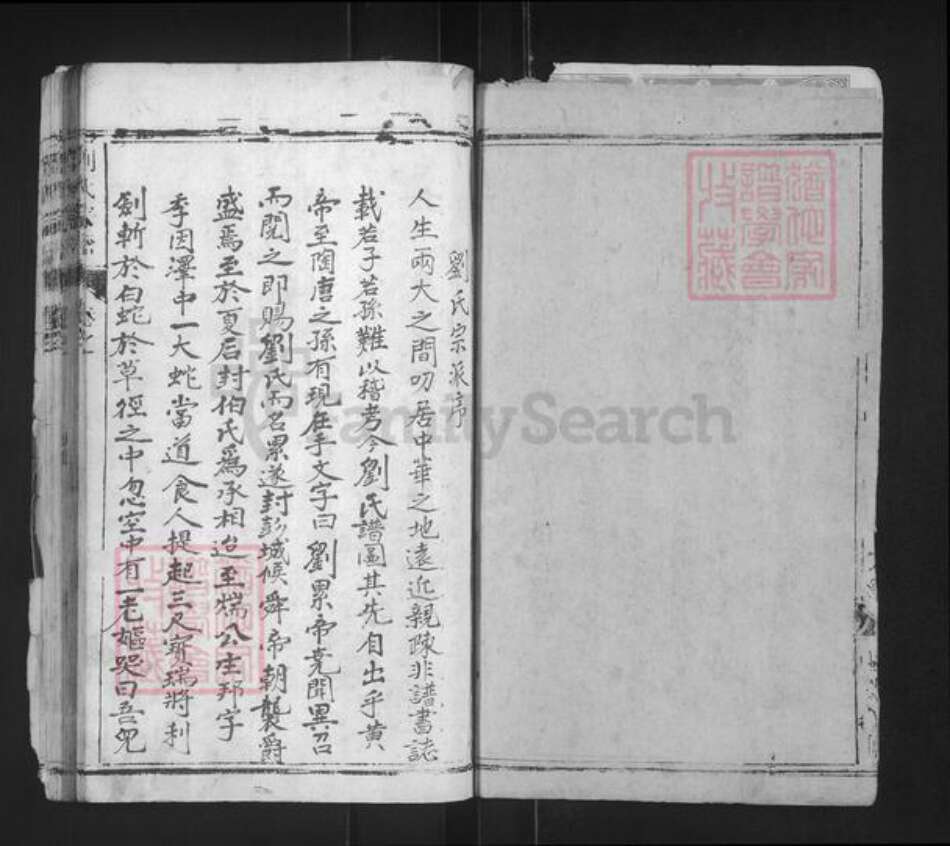 劉氏宗派序
人生兩大之間叨居中華之地遠近親踈非譜書誌
載若子若孫難以稽考今劉氏譜圖其先自出乎黄
帝至陶唐之孫有現在手文字曰劉累帝堯聞異召
而閱之即賜劉氏而名累遂封彭城候舜帝朝襲爵
盛焉至於夏后封伯氏爲承相迨至煓公生邦字
季因澤中一大蛇當道食人提起三尺寶瑞將利
劍斬於白蛇於草徑之中忽空中有一老嫗哭曰吾兒
FamilySearch